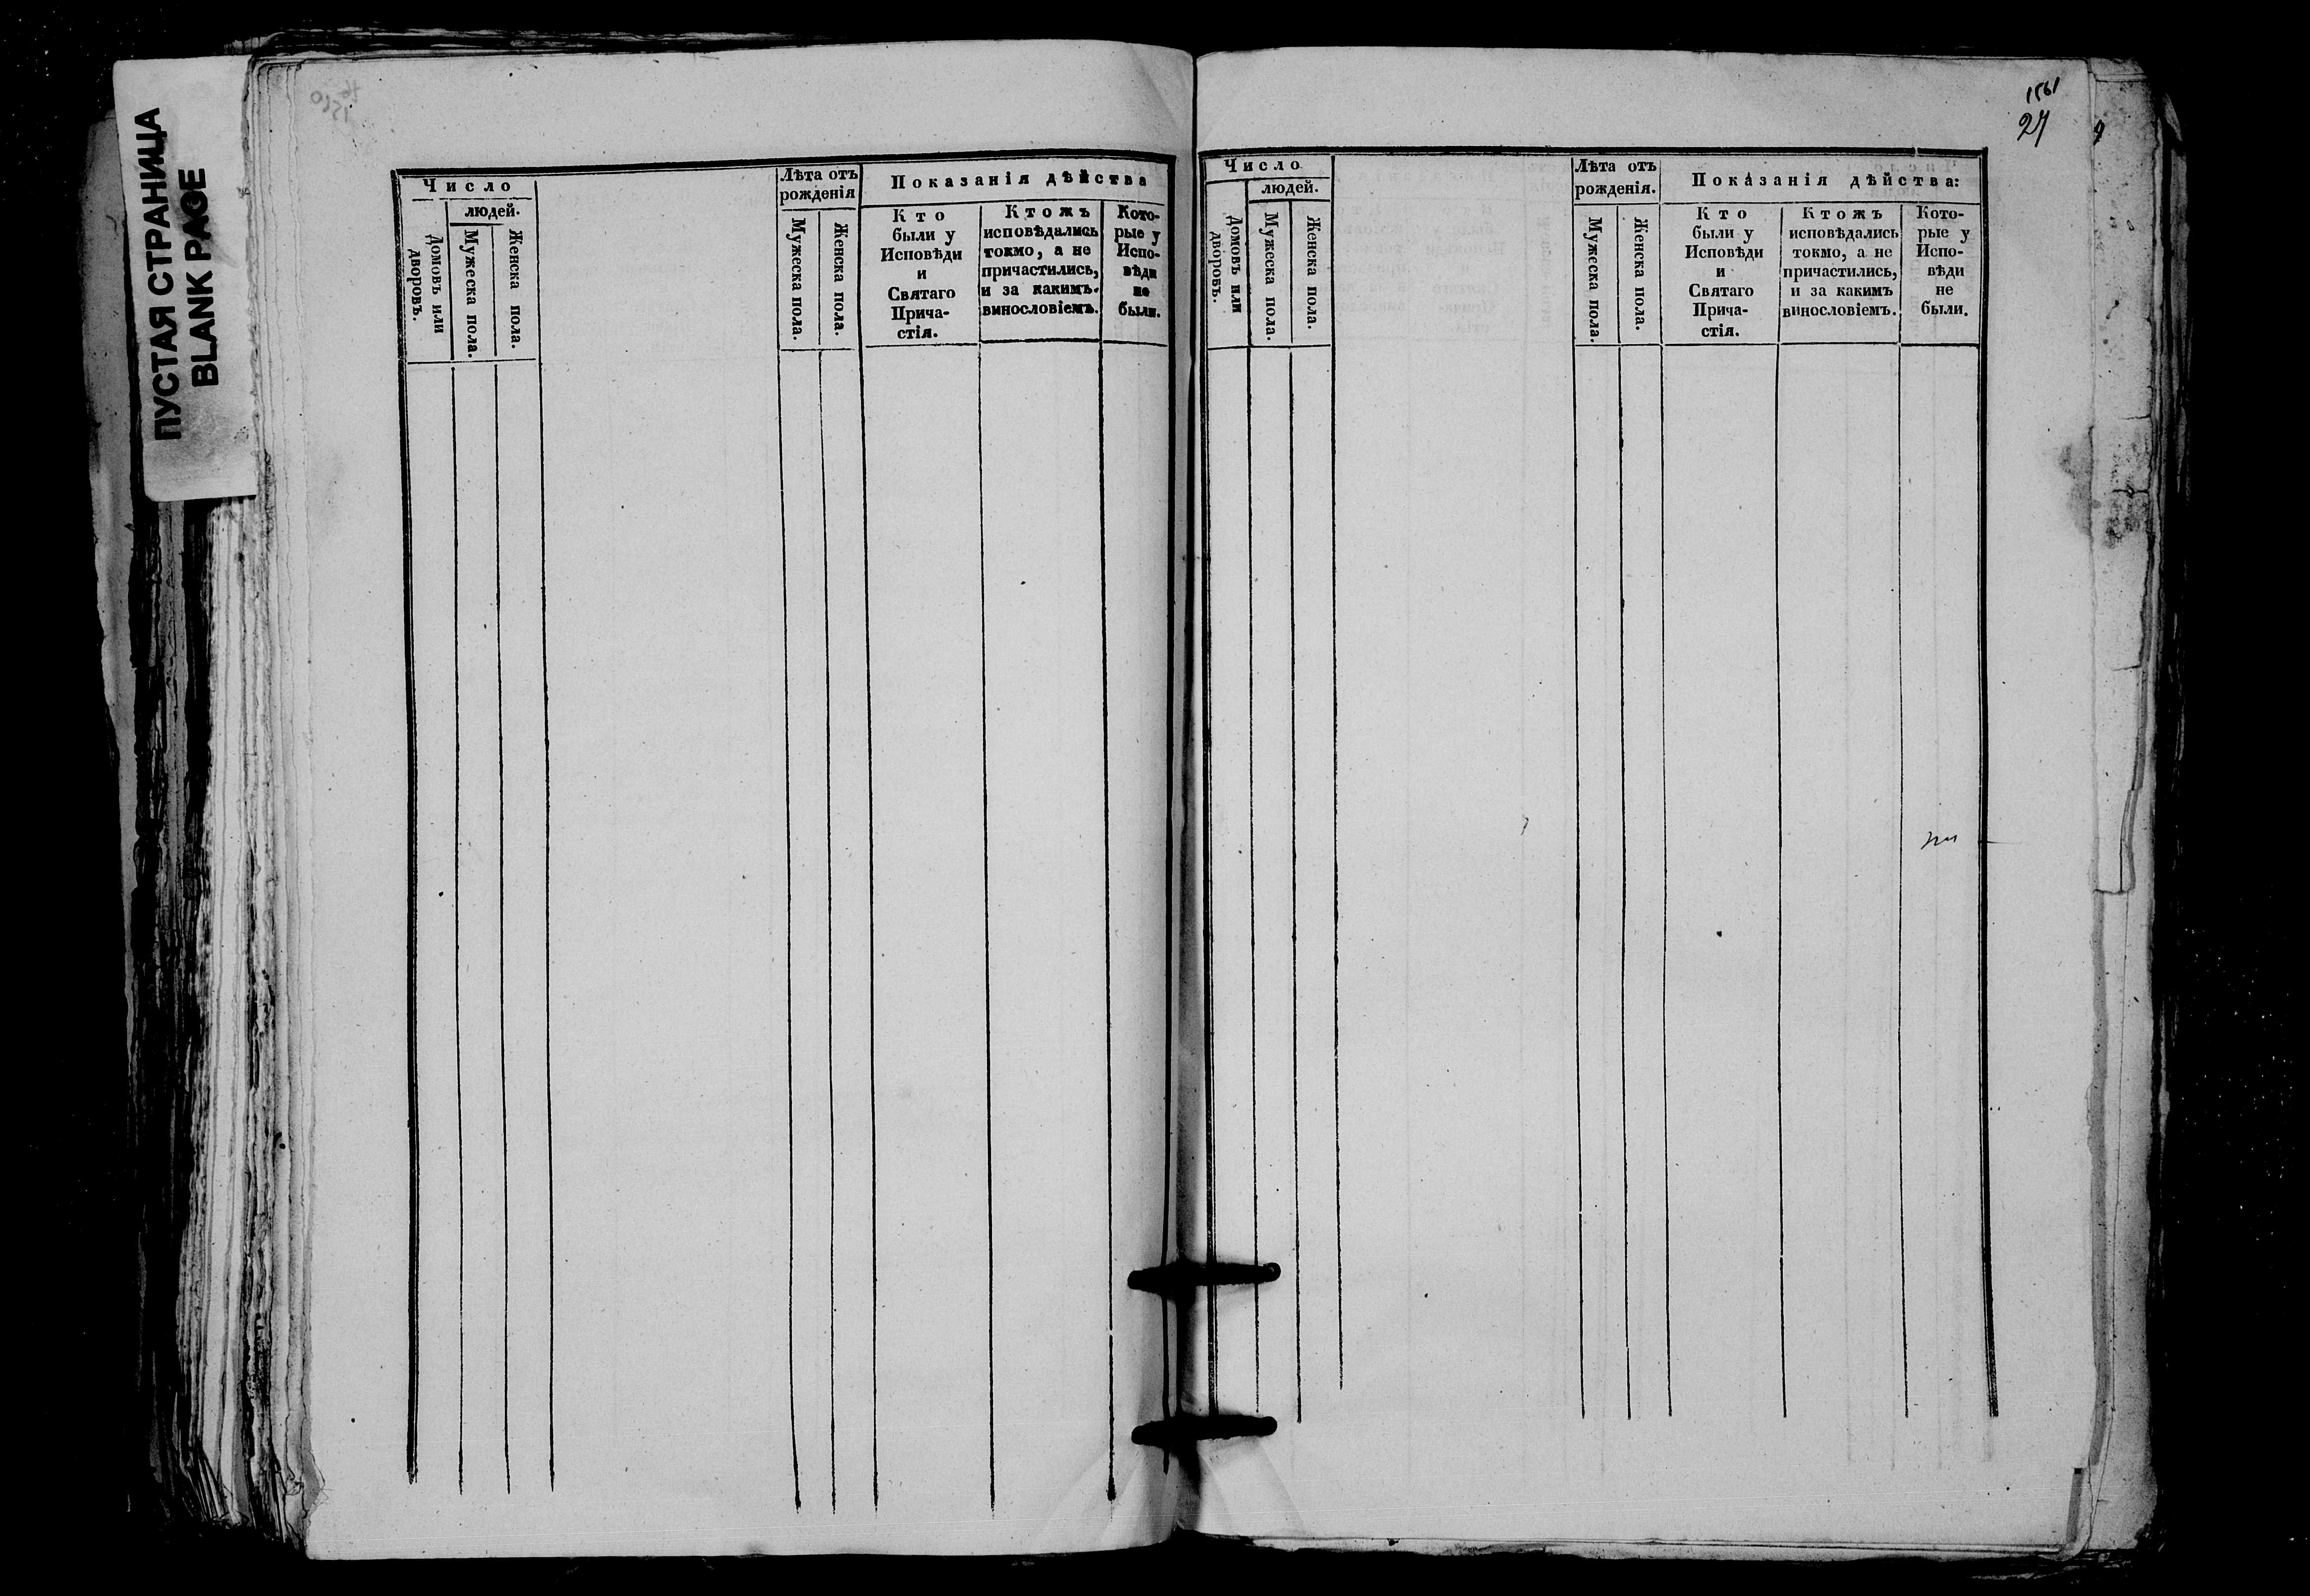 ПУСТАЯ СТРАНИЦА
BLANK PAGE
Число
людей.
Домовъ или
дворовъ.
Мужеска пола.
Женска пола.
Лѣта отъ
рожденія
Мужеска пола.
Женска пола.
Показанія дѣйства
Кто
были у
Исповѣди
и
Святаго
Прича-
стія.
Ктожъ
исповѣдались
токмо, а не
причастились,
и за какимъ.
винословіемъ.
Кото-
рые у
Испо-
вѣди
не
были.
1561
27
Число
людей.
Домовъ или
дворовъ.
Мужеска пола.
Женска пола.
Лѣта отъ
рожденія.
Мужеска пола.
Женска пола.
Показанія дѣйства:
Кто
были у
Исповѣди
и
Святаго
Прича-
стія.
Ктожъ
исповѣдались
токмо, а не
причастились,
и за какимъ
винословіемъ.
Кото-
рые у
Испо-
вѣди
не
были.